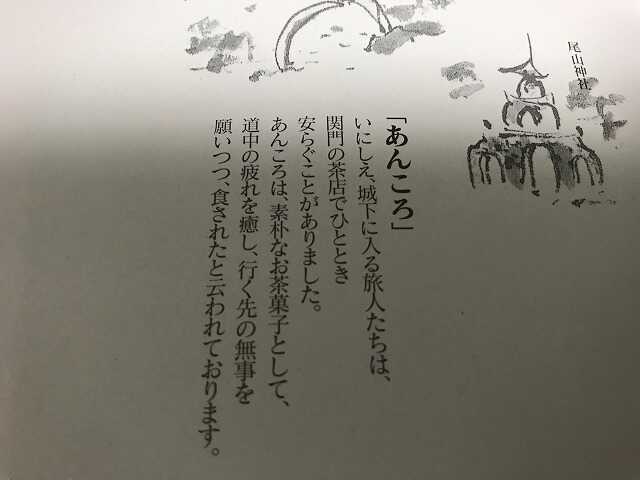 尾山神社
「あんころ」
いにしえ、城下に入る旅人たちは、
関門の茶店でひととき
安らぐことがありました。
あんころは、素朴なお茶菓子として、
道中の疲れを癒し、行く先の無事を
願いつつ、食されたと云われております。